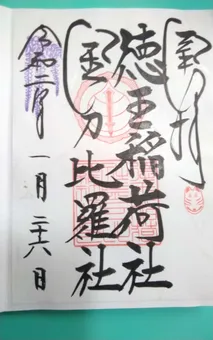 奉拝
徳王稲荷社
金刀比羅社
令和二年
一月二十六日